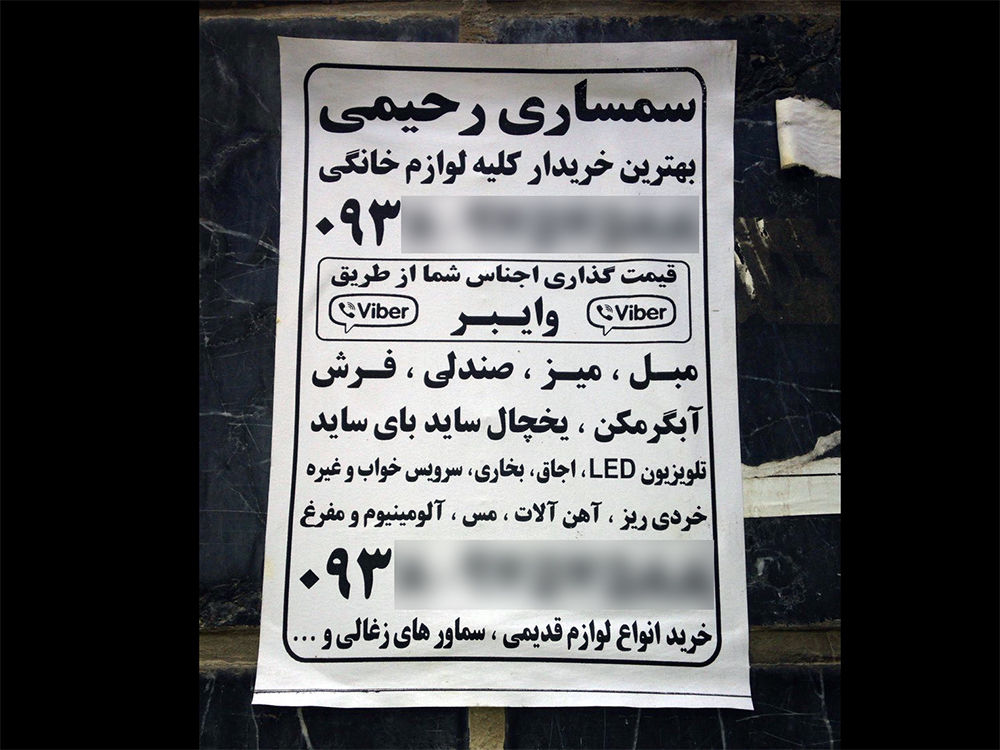 سمساری رحیمی
بهترین خریدار کلیه لوازم خانگی
۰۹۳
قیمت گذاری اجناس شما از طریق
Viber وایبـر Viber
مبـل ، میـز ، صندلی ، فـرش
آبگرمکن ، یخچال ساید بای ساید
تلویزیون LED، اجاق، بخاری، سرویس خواب و غیره
خردی ریز ، آهن آلات ، مس ، آلومینیوم و مفرغ
۰۹۳
خرید انواع لوازم قدیمی ، سماور های زغالی و ...